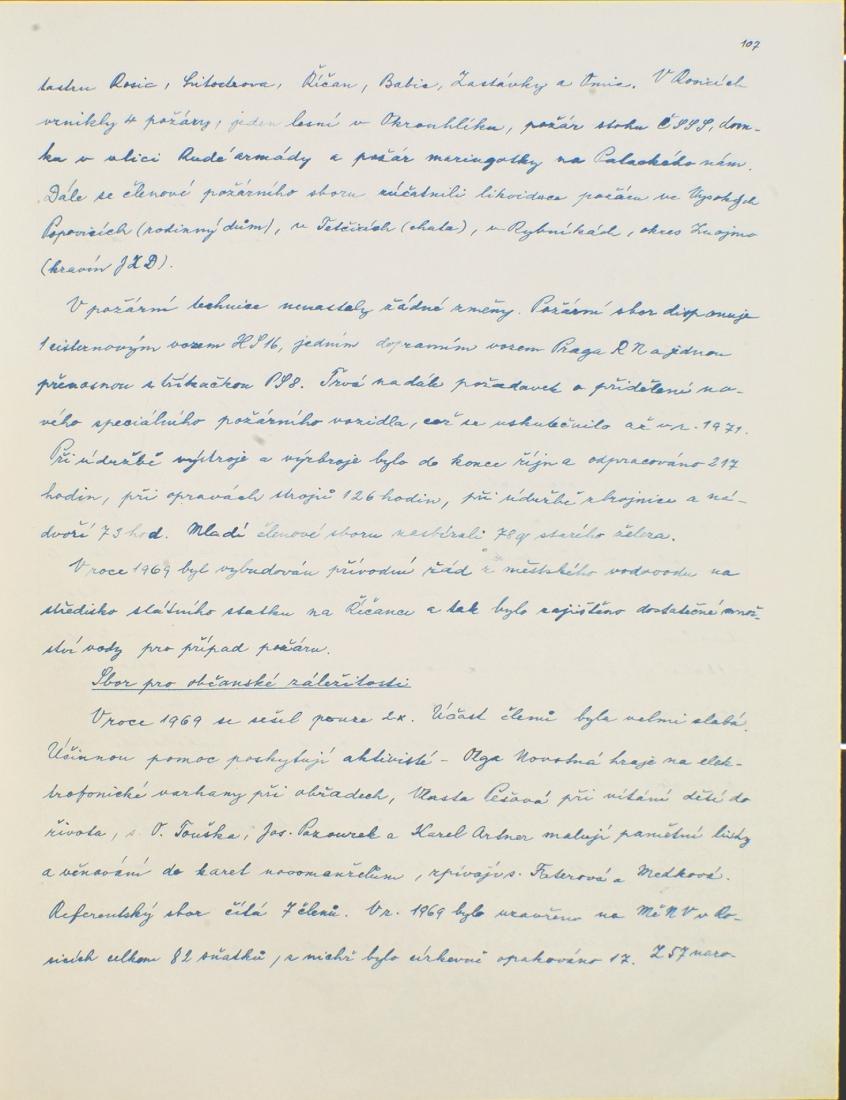 107
tastru Rosic, Litostrova, Říčan, Babic, Zastávky a Omic. V Rosicích
vznikly 4 požáry, jeden lesní v Okrouhlíku, požár stohu ČSSS, dom-
ka v ulici Rudé armády a požár maringotky na Palackého nám.
Dále se členové požárního sboru zúčastnili likvidace požáru ve Vysokých
Popovicích (rodinný dům), v Tetčicích (chata), v Rybníkách, okres Znojmo
(kravín JZD).
V požární technice nenastaly žádné změny. Požární sbor disponuje
1 cisternovým vozem HS16, jedním dopravním vozem Praga RN a jednou
přenosnou stříkačkou PS8. Trvá nadále požadavek o přidělení no-
vého speciálního požárního vozidla, což se uskutečnilo až v r. 1971.
Při údržbě výstroje a výzbroje bylo do konce října odpracováno 217
hodin, při opravách strojů 126 hodin, při údržbě zbrojnice a ná-
dvoří 73 hod. Mladí členové sboru nasbírali 78 q starého železa.
V roce 1969 byl vybudován přívodní řád z městského vodovodu na
středisko státního statku na Říčance a tak bylo zajištěno dostatečné množ-
ství vody pro případ požáru.
Sbor pro občanské záležitosti
V roce 1969 se sešel pouze 2x. Účast členů byla velmi slabá.
Účinnou pomoc poskytují aktivisté - Olga Novotná hraje na elek-
trofonické varhany při obřadech, Vlasta Pešová při vítání dětí do
života, s. V. Touška, Jos. Pazourek a Karel Artner malují pamětní listy
a věnování do karet novomanželům, zpívají s. Fiterová a Medková.
Referentský sbor čítá 7 členů. V r. 1969 bylo uzavřeno na MěNV v Ro-
sicích celkem 82 sňatků, z nichž bylo církevně opakováno 17. Z 57 naro-